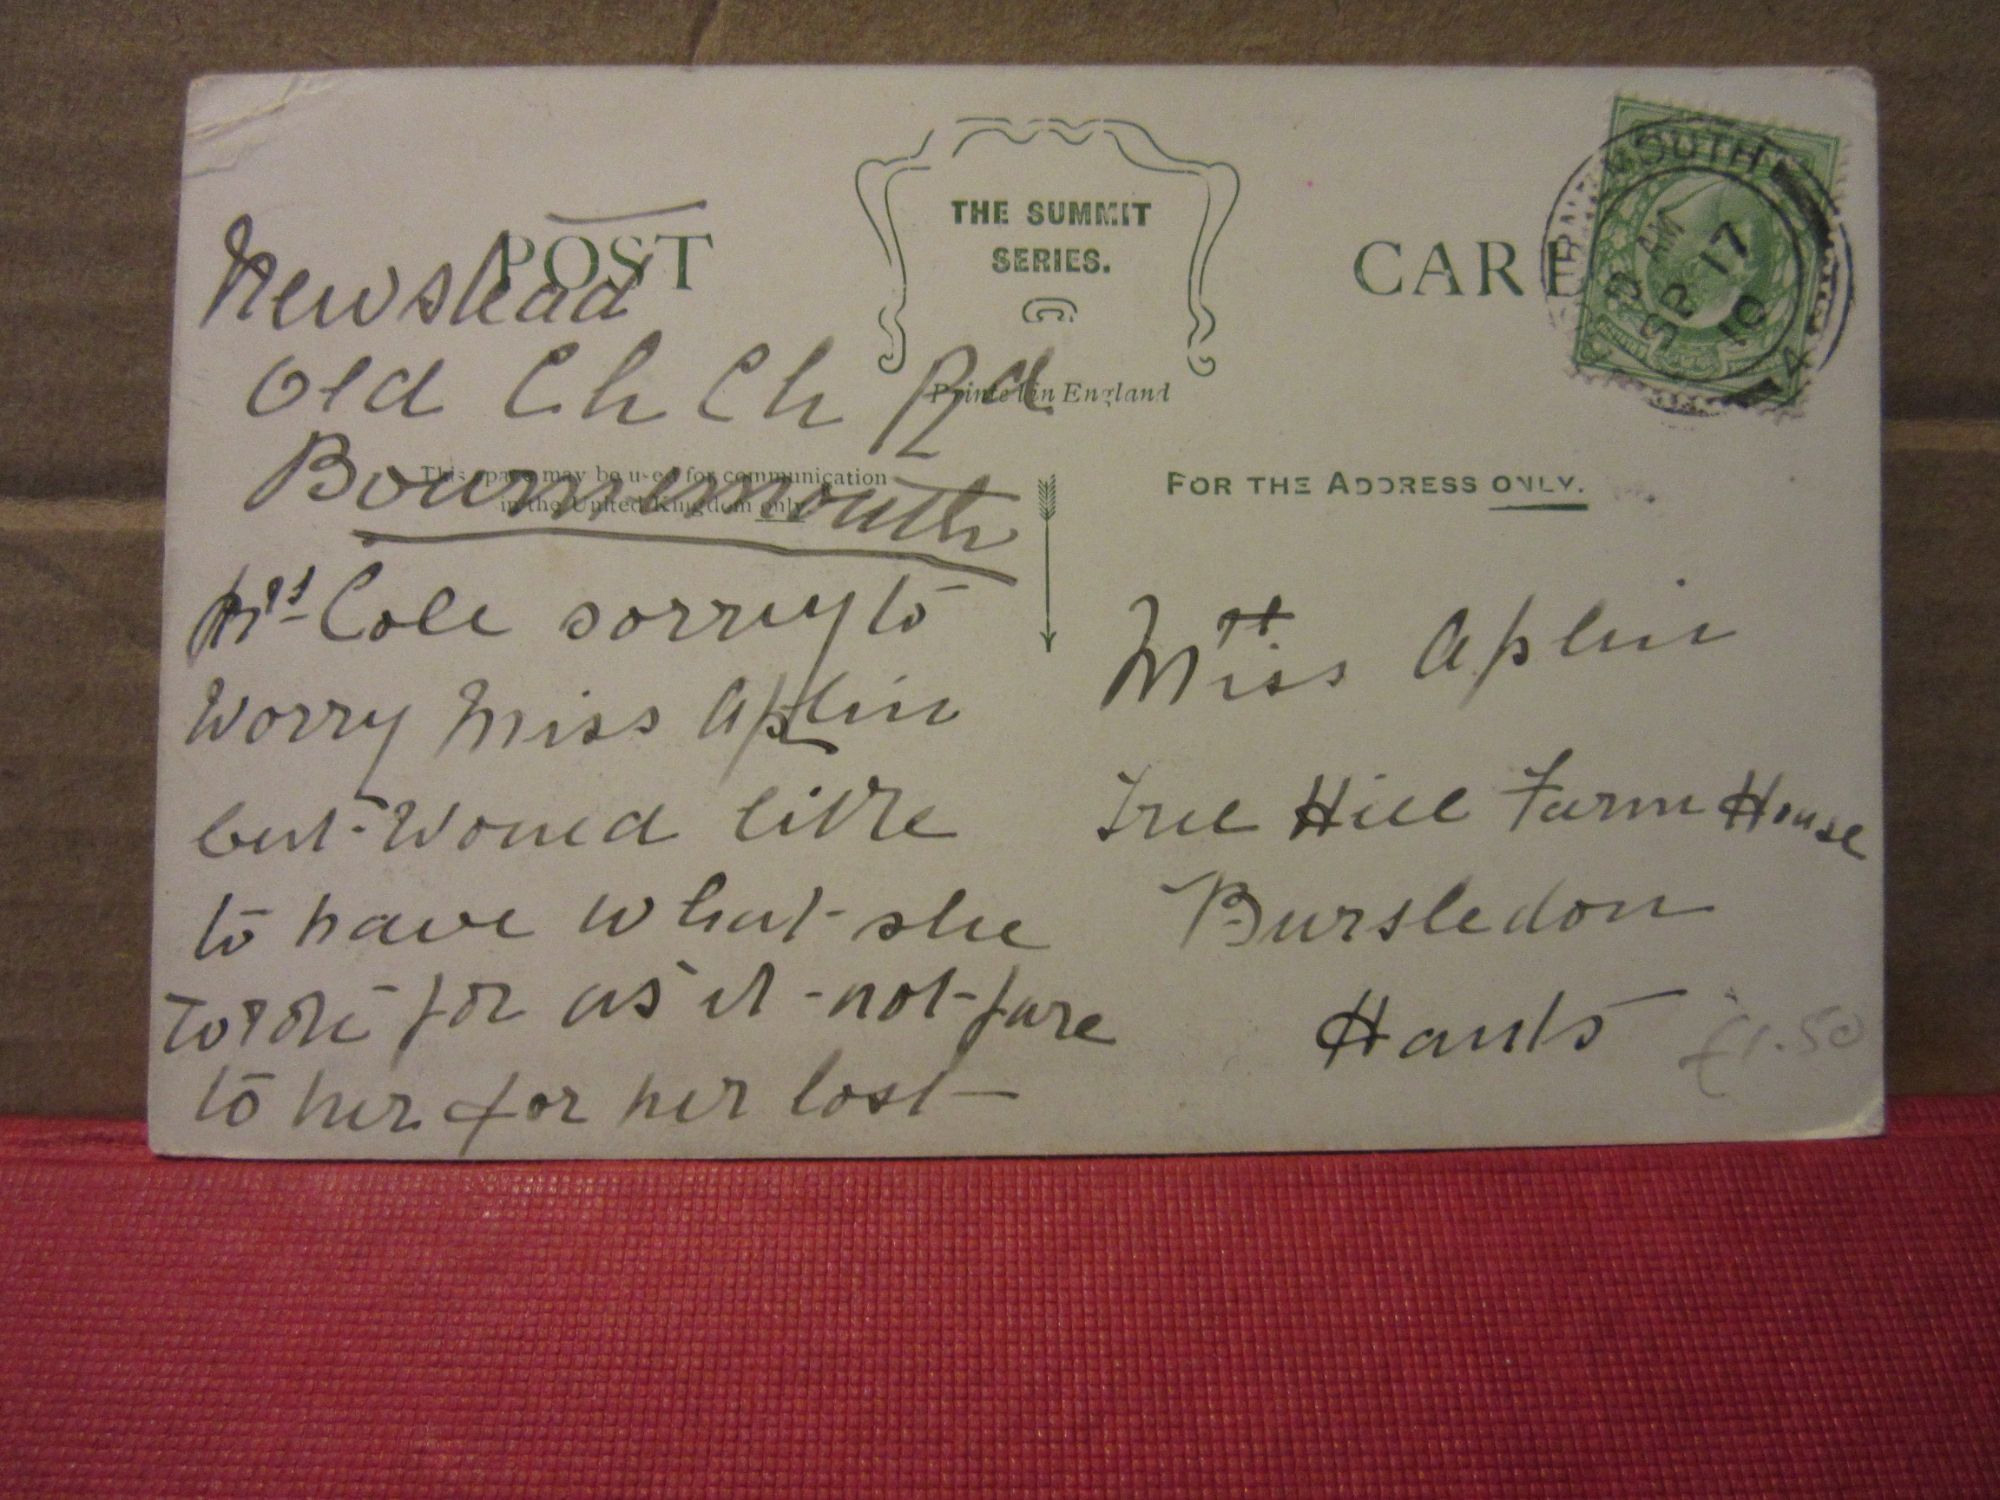 POST CARD
THE SUMMIT
SERIES.
Printed in England
This space may be used for communication
in the United Kingdom only.
FOR THE ADDRESS ONLY.
BOURNEMOUTH
AM
SP 17
10
4
Newstead
Old Ch Ch Rd
Bournemouth
Mrs Cole sorrey to
Worry Miss Aplin
but Would like
to have what she
for as it not fare
to her for her lost
Miss Aplin
Hill Farm House
Bursledon
Hants
£1.50